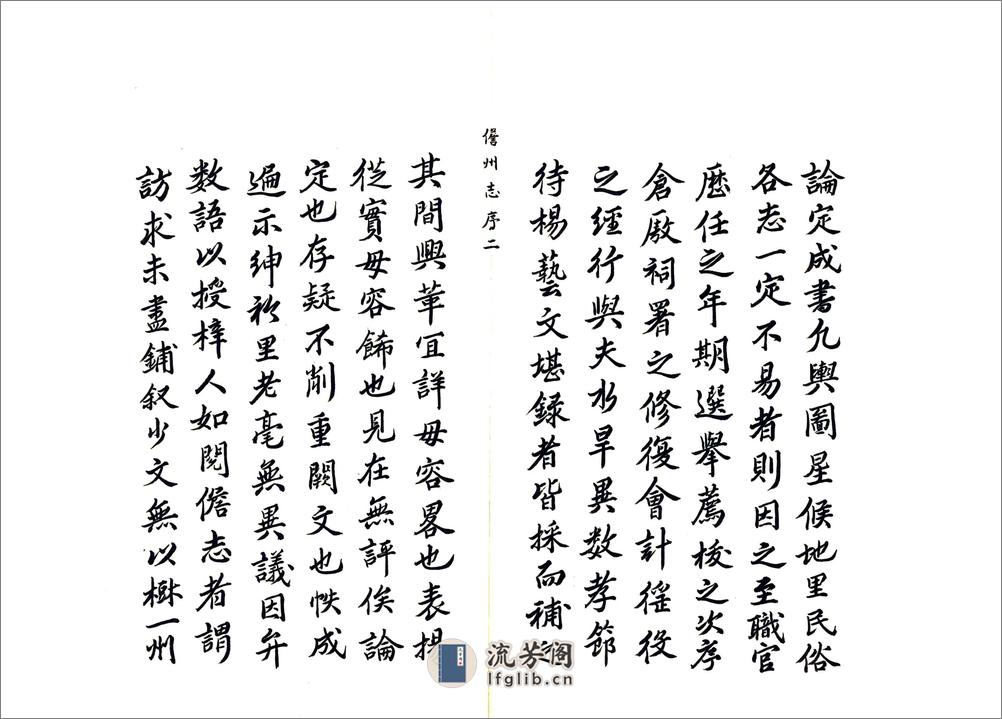 論定成書凢輿圖星候地里民俗
各志一定不易者則因之至職官
歷任之年期選舉薦梭之次序
倉厫祠署之修復會計徭役
之經行與夫水旱異数孝節
待楊藝文堪録者皆採而補
儋州志序二
其間興革宜詳毋容畧也表揚
從實毋容餙也見在無評俟論
定也存疑不削重闕文也帙成
遍示紳衿里老毫無異議因弁
数語以授梓人如閱儋志者謂
訪求未盡鋪叙少文無以樹一州
流芳阁
lfglib.cn